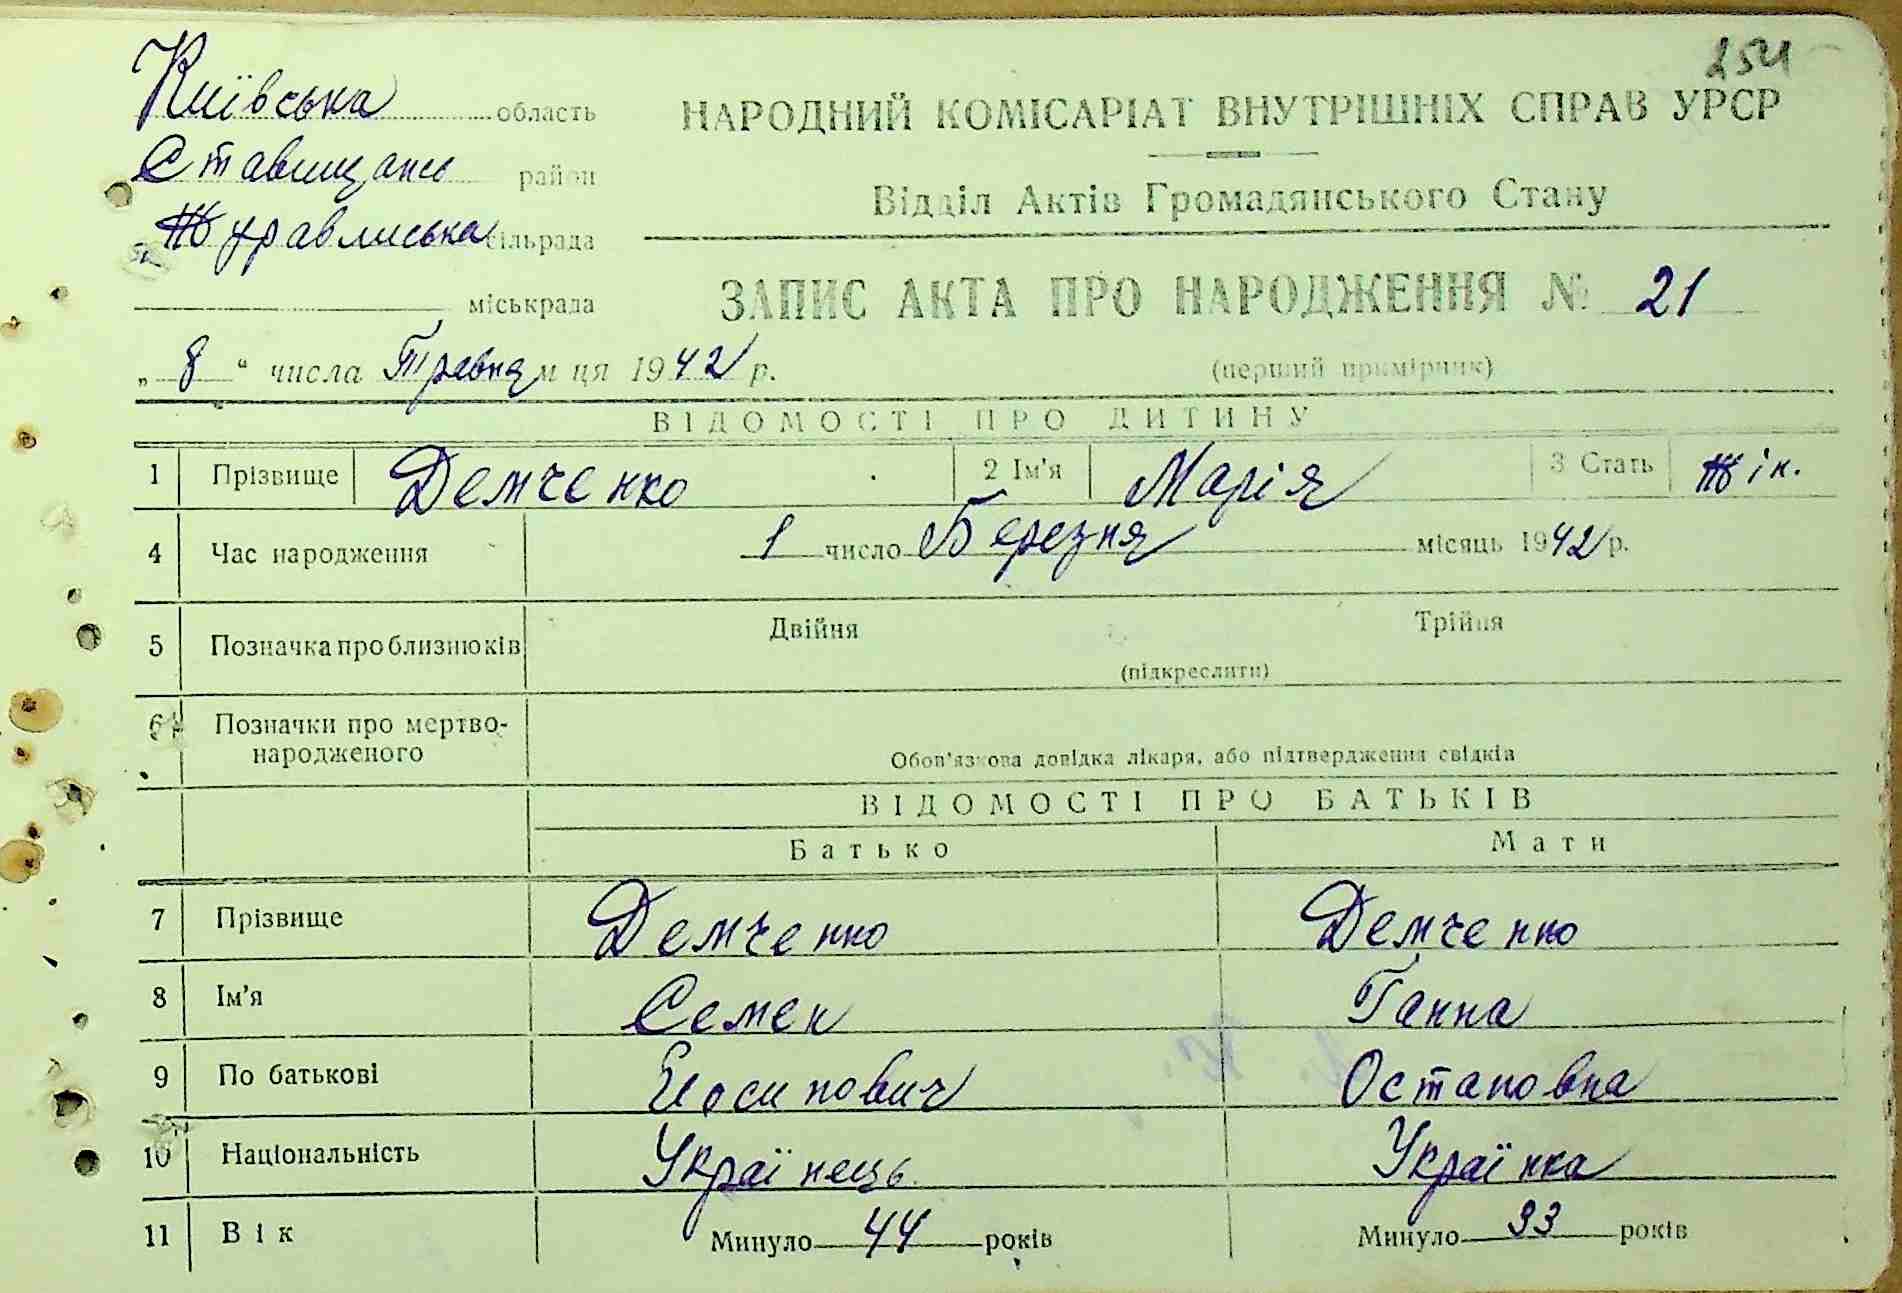 254
Київська область
НАРОДНИЙ КОМІСАРІАТ ВНУТРІШНІХ СПРАВ УРСР
Ставищансь район
Відділ Актів Громадянського Стану
Журавлиська сільрада
міськрада
ЗАПИС АКТА ПРО НАРОДЖЕННЯ № 21
„ 8 “ числа Травня м ця 1942 р.
(перший примірник)
ВІДОМОСТІ ПРО ДИТИНУ
1 Прізвище Демченко 2 Ім'я Марія 3 Стать Жік.
4 Час народження 1 число Березня місяць 1942 р.
5 Позначка про близнюків Двійня Трійня
(підкреслити)
6 Позначки про мертво-
народженого
Обов'язкова довідка лікаря, або підтвердження свідків
ВІДОМОСТІ ПРО БАТЬКІВ
Батько Мати
7 Прізвище Демченко Демченко
8 Ім'я Семен Ганна
9 По батькові Йосипович Остаповна
10 Національність Українець Українка
11 Вік Минуло 44 років Минуло 33 років